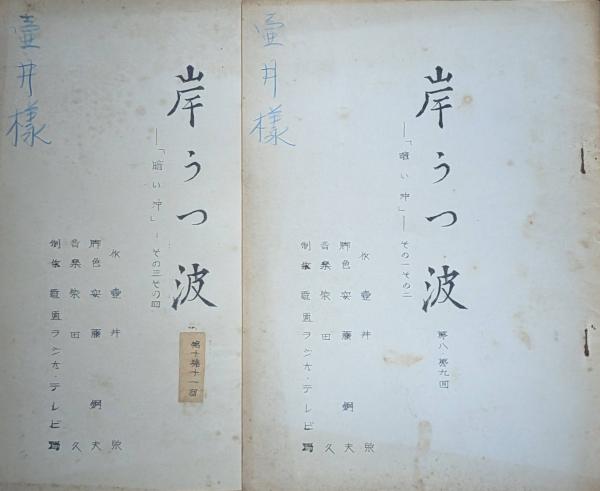 岸うつ波
―「暗い沖」― その一その二
第八第九回
作 壷井 栄
脚色 安藤 夫
音楽 柴田 久
制作 電通ラジオ・テレビ局
壷井様
岸うつ波
―「暗い沖」― その三その四
第十第十一回
作 壷井 栄
脚色 安藤 夫
音楽 柴田 久
制作 電通ラジオ・テレビ局
壷井様